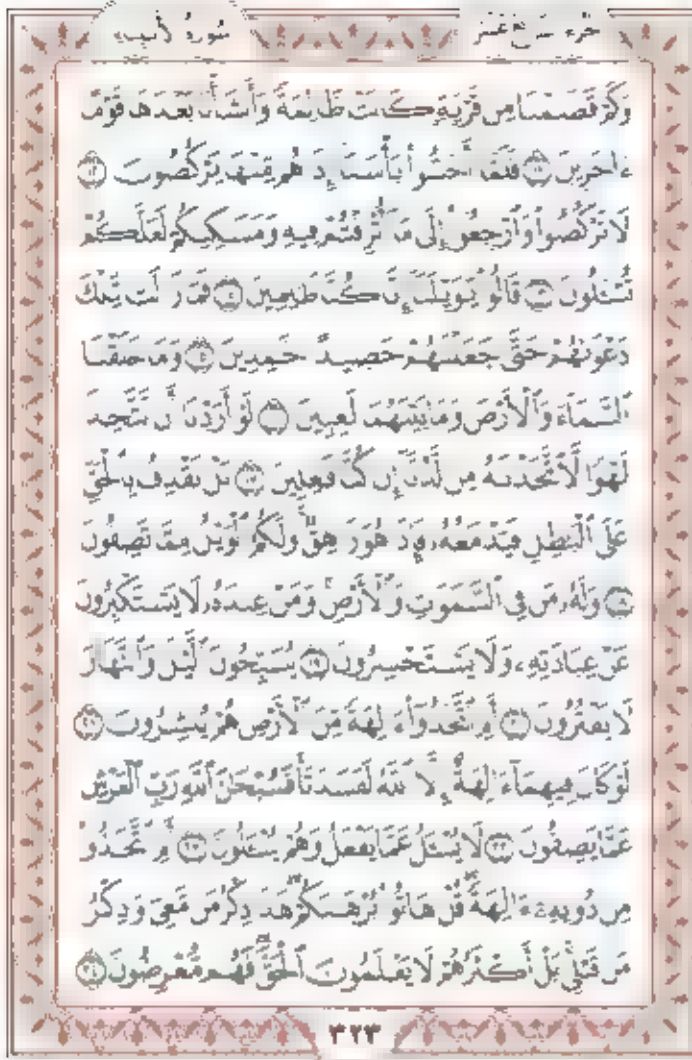 سورة الأنبياء
الجزء السابع عشر
وَكَمْ قَصَمْنَا مِن قَرْيَةٍ كَانَتْ ظَالِمَةً وَأَنشَأْنَا بَعْدَهَا قَوْمًا
ءَاخَرِينَ ١١ فَلَمَّا أَحَسُّوا۟ بَأْسَنَآ إِذَا هُم مِّنْهَا يَرْكُضُونَ ١٢
لَا تَرْكُضُوا۟ وَٱرْجِعُوٓا۟ إِلَىٰ مَآ أُتْرِفْتُمْ فِيهِ وَمَسَٰكِنِكُمْ لَعَلَّكُمْ
تُسْـَٔلُونَ ١٣ قَالُوا۟ يَٰوَيْلَنَآ إِنَّا كُنَّا ظَٰلِمِينَ ١٤ فَمَا زَالَت تِّلْكَ
دَعْوَىٰهُمْ حَتَّىٰ جَعَلْنَٰهُمْ حَصِيدًا خَٰمِدِينَ ١٥ وَمَا خَلَقْنَا
ٱلسَّمَآءَ وَٱلْأَرْضَ وَمَا بَيْنَهُمَا لَٰعِبِينَ ١٦ لَوْ أَرَدْنَآ أَن نَّتَّخِذَ
لَهْوًا لَّٱتَّخَذْنَٰهُ مِن لَّدُنَّآ إِن كُنَّا فَٰعِلِينَ ١٧ بَلْ نَقْذِفُ بِٱلْحَقِّ
عَلَى ٱلْبَٰطِلِ فَيَدْمَغُهُۥ فَإِذَا هُوَ زَاهِقٌ وَلَكُمُ ٱلْوَيْلُ مِمَّا تَصِفُونَ
١٨ وَلَهُۥ مَن فِى ٱلسَّمَٰوَٰتِ وَٱلْأَرْضِ وَمَنْ عِندَهُۥ لَا يَسْتَكْبِرُونَ
عَنْ عِبَادَتِهِۦ وَلَا يَسْتَحْسِرُونَ ١٩ يُسَبِّحُونَ ٱلَّيْلَ وَٱلنَّهَارَ
لَا يَفْتُرُونَ ٢٠ أَمِ ٱتَّخَذُوٓا۟ ءَالِهَةً مِّنَ ٱلْأَرْضِ هُمْ يُنشِرُونَ ٢١
لَوْ كَانَ فِيهِمَآ ءَالِهَةٌ إِلَّا ٱللَّهُ لَفَسَدَتَا فَسُبْحَٰنَ ٱللَّهِ رَبِّ ٱلْعَرْشِ
عَمَّا يَصِفُونَ ٢٢ لَا يُسْـَٔلُ عَمَّا يَفْعَلُ وَهُمْ يُسْـَٔلُونَ ٢٣ أَمِ ٱتَّخَذُوا۟
مِن دُونِهِۦٓ ءَالِهَةً قُلْ هَاتُوا۟ بُرْهَٰنَكُمْ هَٰذَا ذِكْرُ مَن مَّعِىَ وَذِكْرُ
مَن قَبْلِى بَلْ أَكْثَرُهُمْ لَا يَعْلَمُونَ ٱلْحَقَّ فَهُم مُّعْرِضُونَ ٢٤
٣٢٣